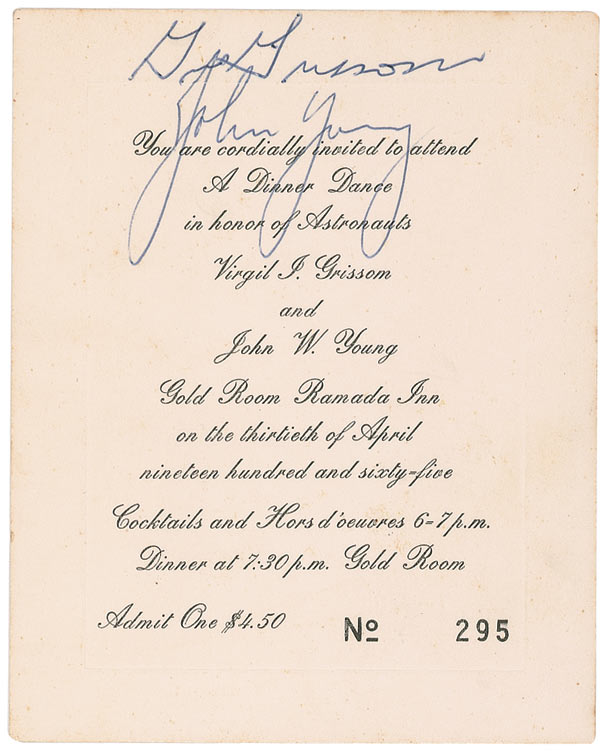 Gus Grissom
John Young
You are cordially invited to attend
A Dinner Dance
in honor of Astronauts
Virgil I. Grissom
and
John W. Young
Gold Room Ramada Inn
on the thirtieth of April
nineteen hundred and sixty-five
Cocktails and Hors d'oeuvres 6-7 p.m.
Dinner at 7:30 p.m. Gold Room
Admit One $4.50 Nº 295